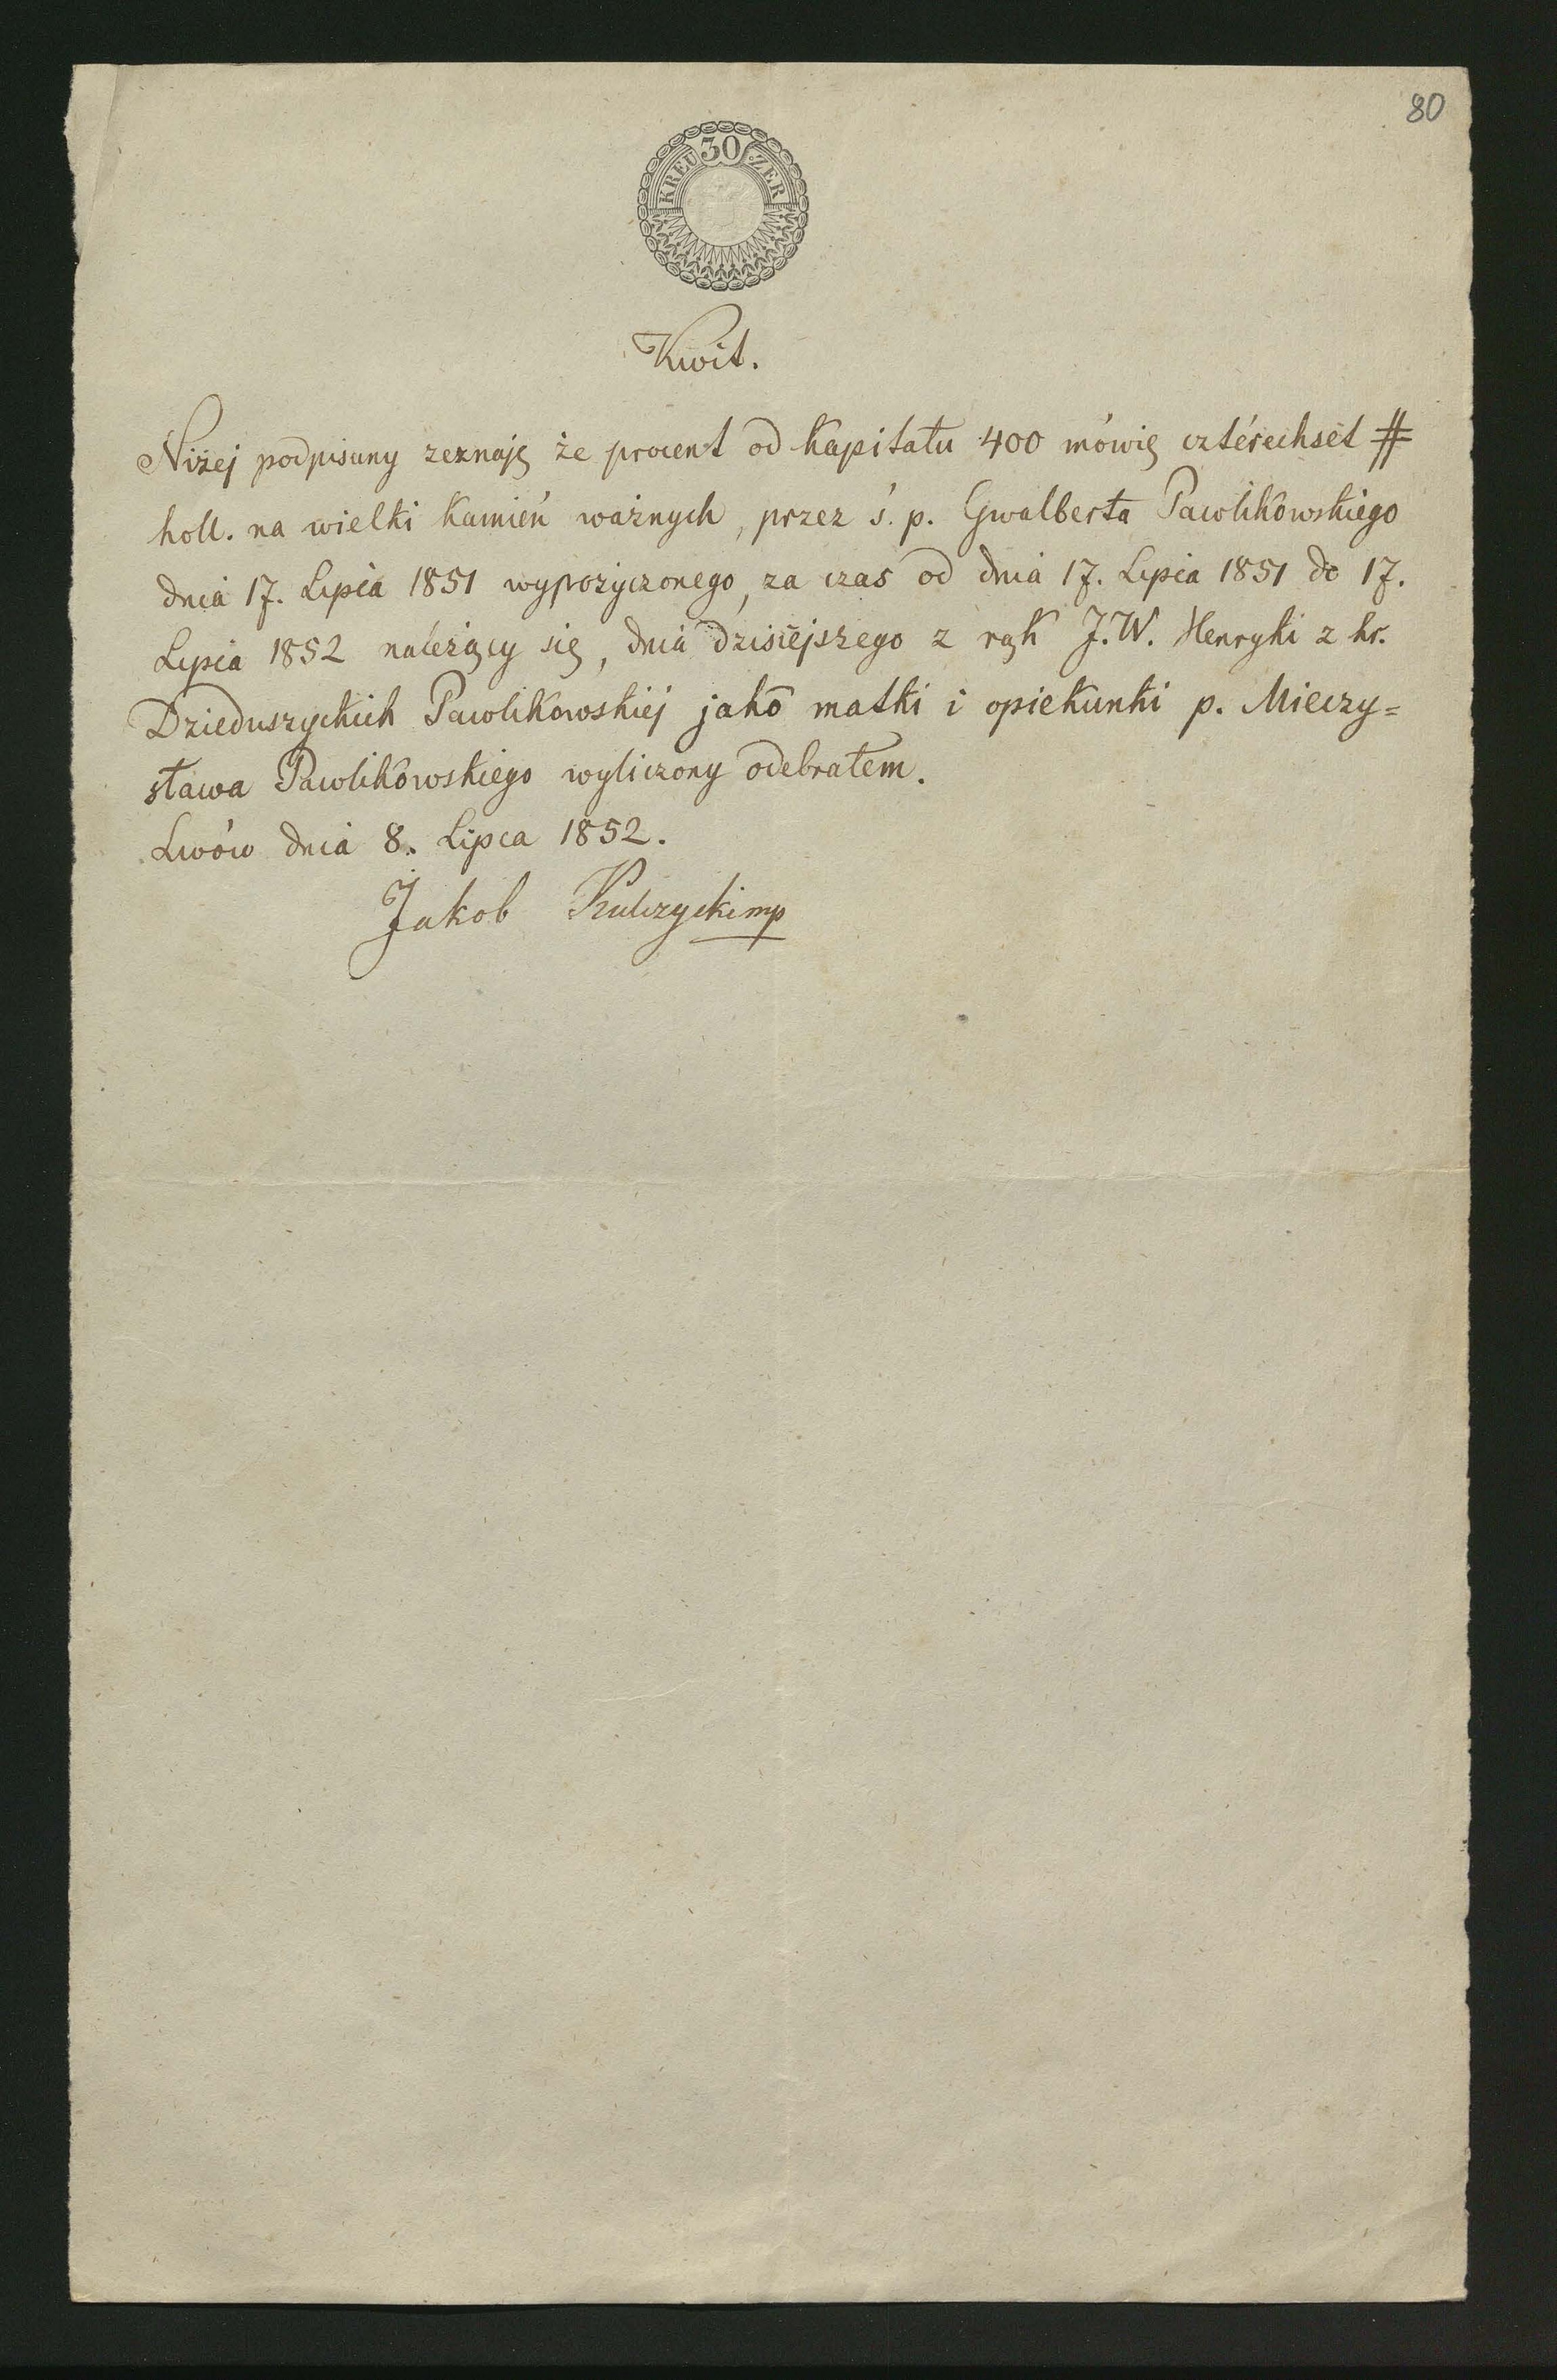 80
30
KREUZER
Kwit.
Niżej podpisany zeznaję że procent od Kapitału 400 mówię cztérechset #
holl. na wielki Kamień ważnych, przez ś. p. Gwalberta Pawlikowskiego
dnia 17. Lipca 1851 wypożyczonego, za czas od dnia 17. Lipca 1851 do 17.
Lipca 1852 należący się, dnia dzisiejszego z rąk J.W. Henryki z hr.
Dzieduszyckich Pawlikowskiéj jako matki i opiekunki p. Mieczy=
sława Pawlikowskiego wyliczony odebrałem.
Lwów dnia 8. Lipca 1852.
Jakob Kulczycki mp